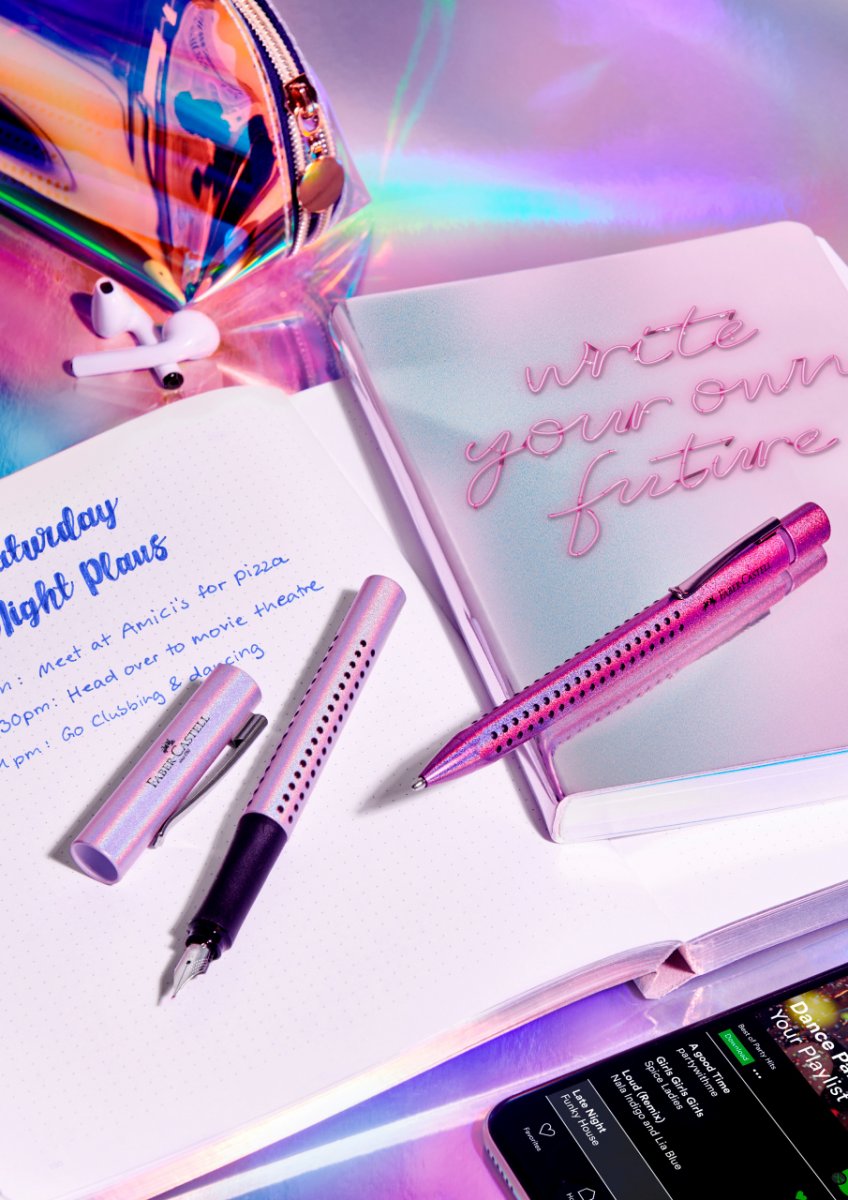 write
your own
future
Night Plans
Meet at Amici's for pizza
30pm: Head over to movie theatre
pm: Go Clubbing & dancing
FABER-CASTELL
FABER-CASTELL
Dance Pa
Your Playlist
Best of Party Hits
Download
A good Time
partywithme
Girls Girls Girls
Spice Ladies
Loud (Remix)
Nala Indigo and Lia Blue
Late Night
Funky House
Favorites